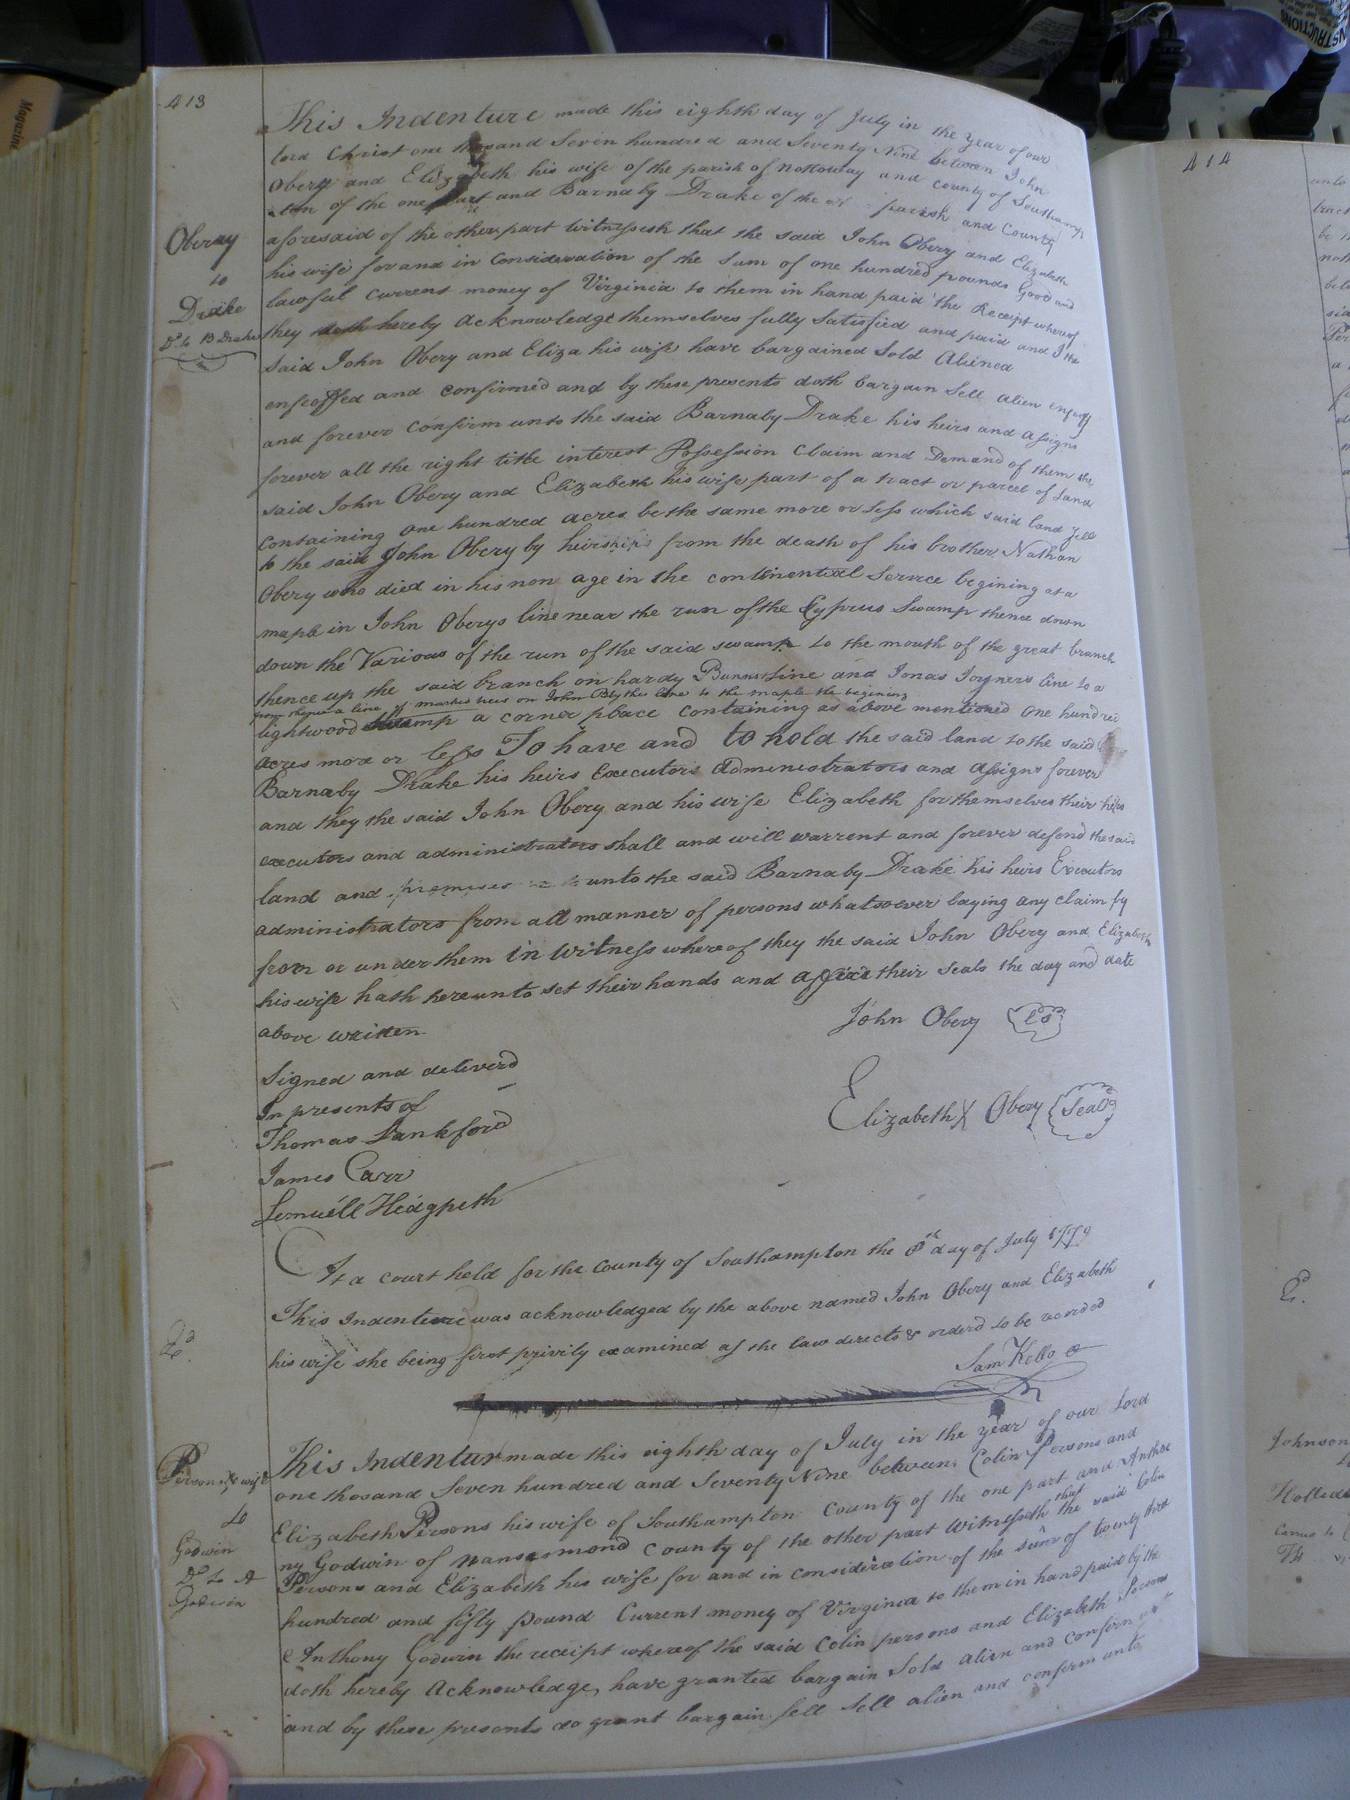 413
This Indenture made this eighth day of July in the year of our
lord Christ one thousand Seven hundred and Seventy Nine between John
Obery and Elizabeth his wife of the parish of nottoway and county of Southamp
ton of the one part and Barnaby Drake of the parish and County
aforesaid of the other part Witnesseth that the said John Obery and Elizabeth
his wife for and in Consideration of the Sum of one hundred pounds Good and
lawful Current money of Virginia to them in hand paid the Receipt whereof
they doth hereby acknowledge themselves fully Satisfied and paid and the
said John Obery and Eliza his wife have bargained Sold Aliened
enfeoffed and confirmed and by these presents doth bargain Sell alien enfeoff
and forever Confirm unto the said Barnaby Drake his heirs and assigns
forever all the right title interest Possession Claim and Demand of them the
said John Obery and Elizabeth his wife part of a tract or parcel of Land
containing one hundred acres be the same more or less which said land fell
to the said John Obery by heirship from the death of his brother Nathan
Obery who died in his non age in the continential Service begining at a
maple in John Oberys line near the run of the Cyprus Swamp thence down
down the Various of the run of the said swamp to the mouth of the great branch
thence up the said branch on hardy line and Jonas Joyners line to a
from thence a line of marked trees on John Blythes line to the maple the begining
lightwood a corner place containing as above mentioned one hundred
acres more or less To have and to hold the said land to the said
Barnaby Drake his heirs Executors Administrators and Assigns forever
and they the said John Obery and his wife Elizabeth for themselves their heirs
executors and administrators shall and will warrent and forever defend the said
land and premises unto the said Barnaby Drake his heirs Executors
administrators from all manner of persons whatsoever laying any claim by
from or under them in witness whereof they the said John Obery and Elizabeth
his wife hath hereunto set their hands and affixed their Seals the day and date
above written
John Obery LS
Signed and deliverd
In presents of
Elizabeth X Obery Seal
Thomas Lankford
James Carr
Lemuell Hedgpeth
At a court held for the County of Southampton the 8th day of July 1779
This Indenture was acknowledged by the above named John Obery and Elizabeth
his wife she being first privily examined as the law directs & orderd to be recorded
Sam Kello
This Indentur made this eighth day of July in the year of our Lord
one thosand Seven hundred and Seventy Nine between Colin Persons and
Elizabeth Persons his wife of Southampton County of the one part and Antho
ny Godwin of Nansemond County of the other part Witnesseth that the said Colin
Persons and Elizabeth his wife for and in consideration of the sum of twenty
hundred and fifty pound Current money of Virginia to them in hand paid by the
Anthony Godwin the receipt whereof the said Colin persons and Elizabeth Persons
doth hereby Acknowledge, have granted bargain Sold alien and confirm
and by these presents do grant bargain sell Sell alien and confirm unto
Oberay
to
Drake
Dd to B Drake
Persons & wife
to
Godwin
Dd to A
Godwin
414
Johnson
INSTRUCTIONS
Magazine